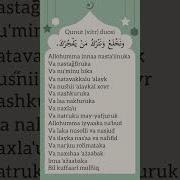 Qunut (vitr) duosi
وَنَخْلَعُ وَنَتْرُكُ مَنْ يَفْجُرُكَ.
Allohumma innaa nasta'iinuka
Va nastag'firuka
Va nu'minu bika
Va natavakkalu 'alayk
Va nusnii 'alaykal xoyr
Va nashkuruka
Va laa nakfuruka
Va naxla'u
Va natruku may-yafjuruk
Allohumma iyyaaka na'bud
Va laka nusolli va nasjud
Va ilayka nas'aa va nahfid
Va narjuu rohmataka
Va naxshaa 'azaabak
Inna 'azaabaka
Bil kuffaari mulhiq